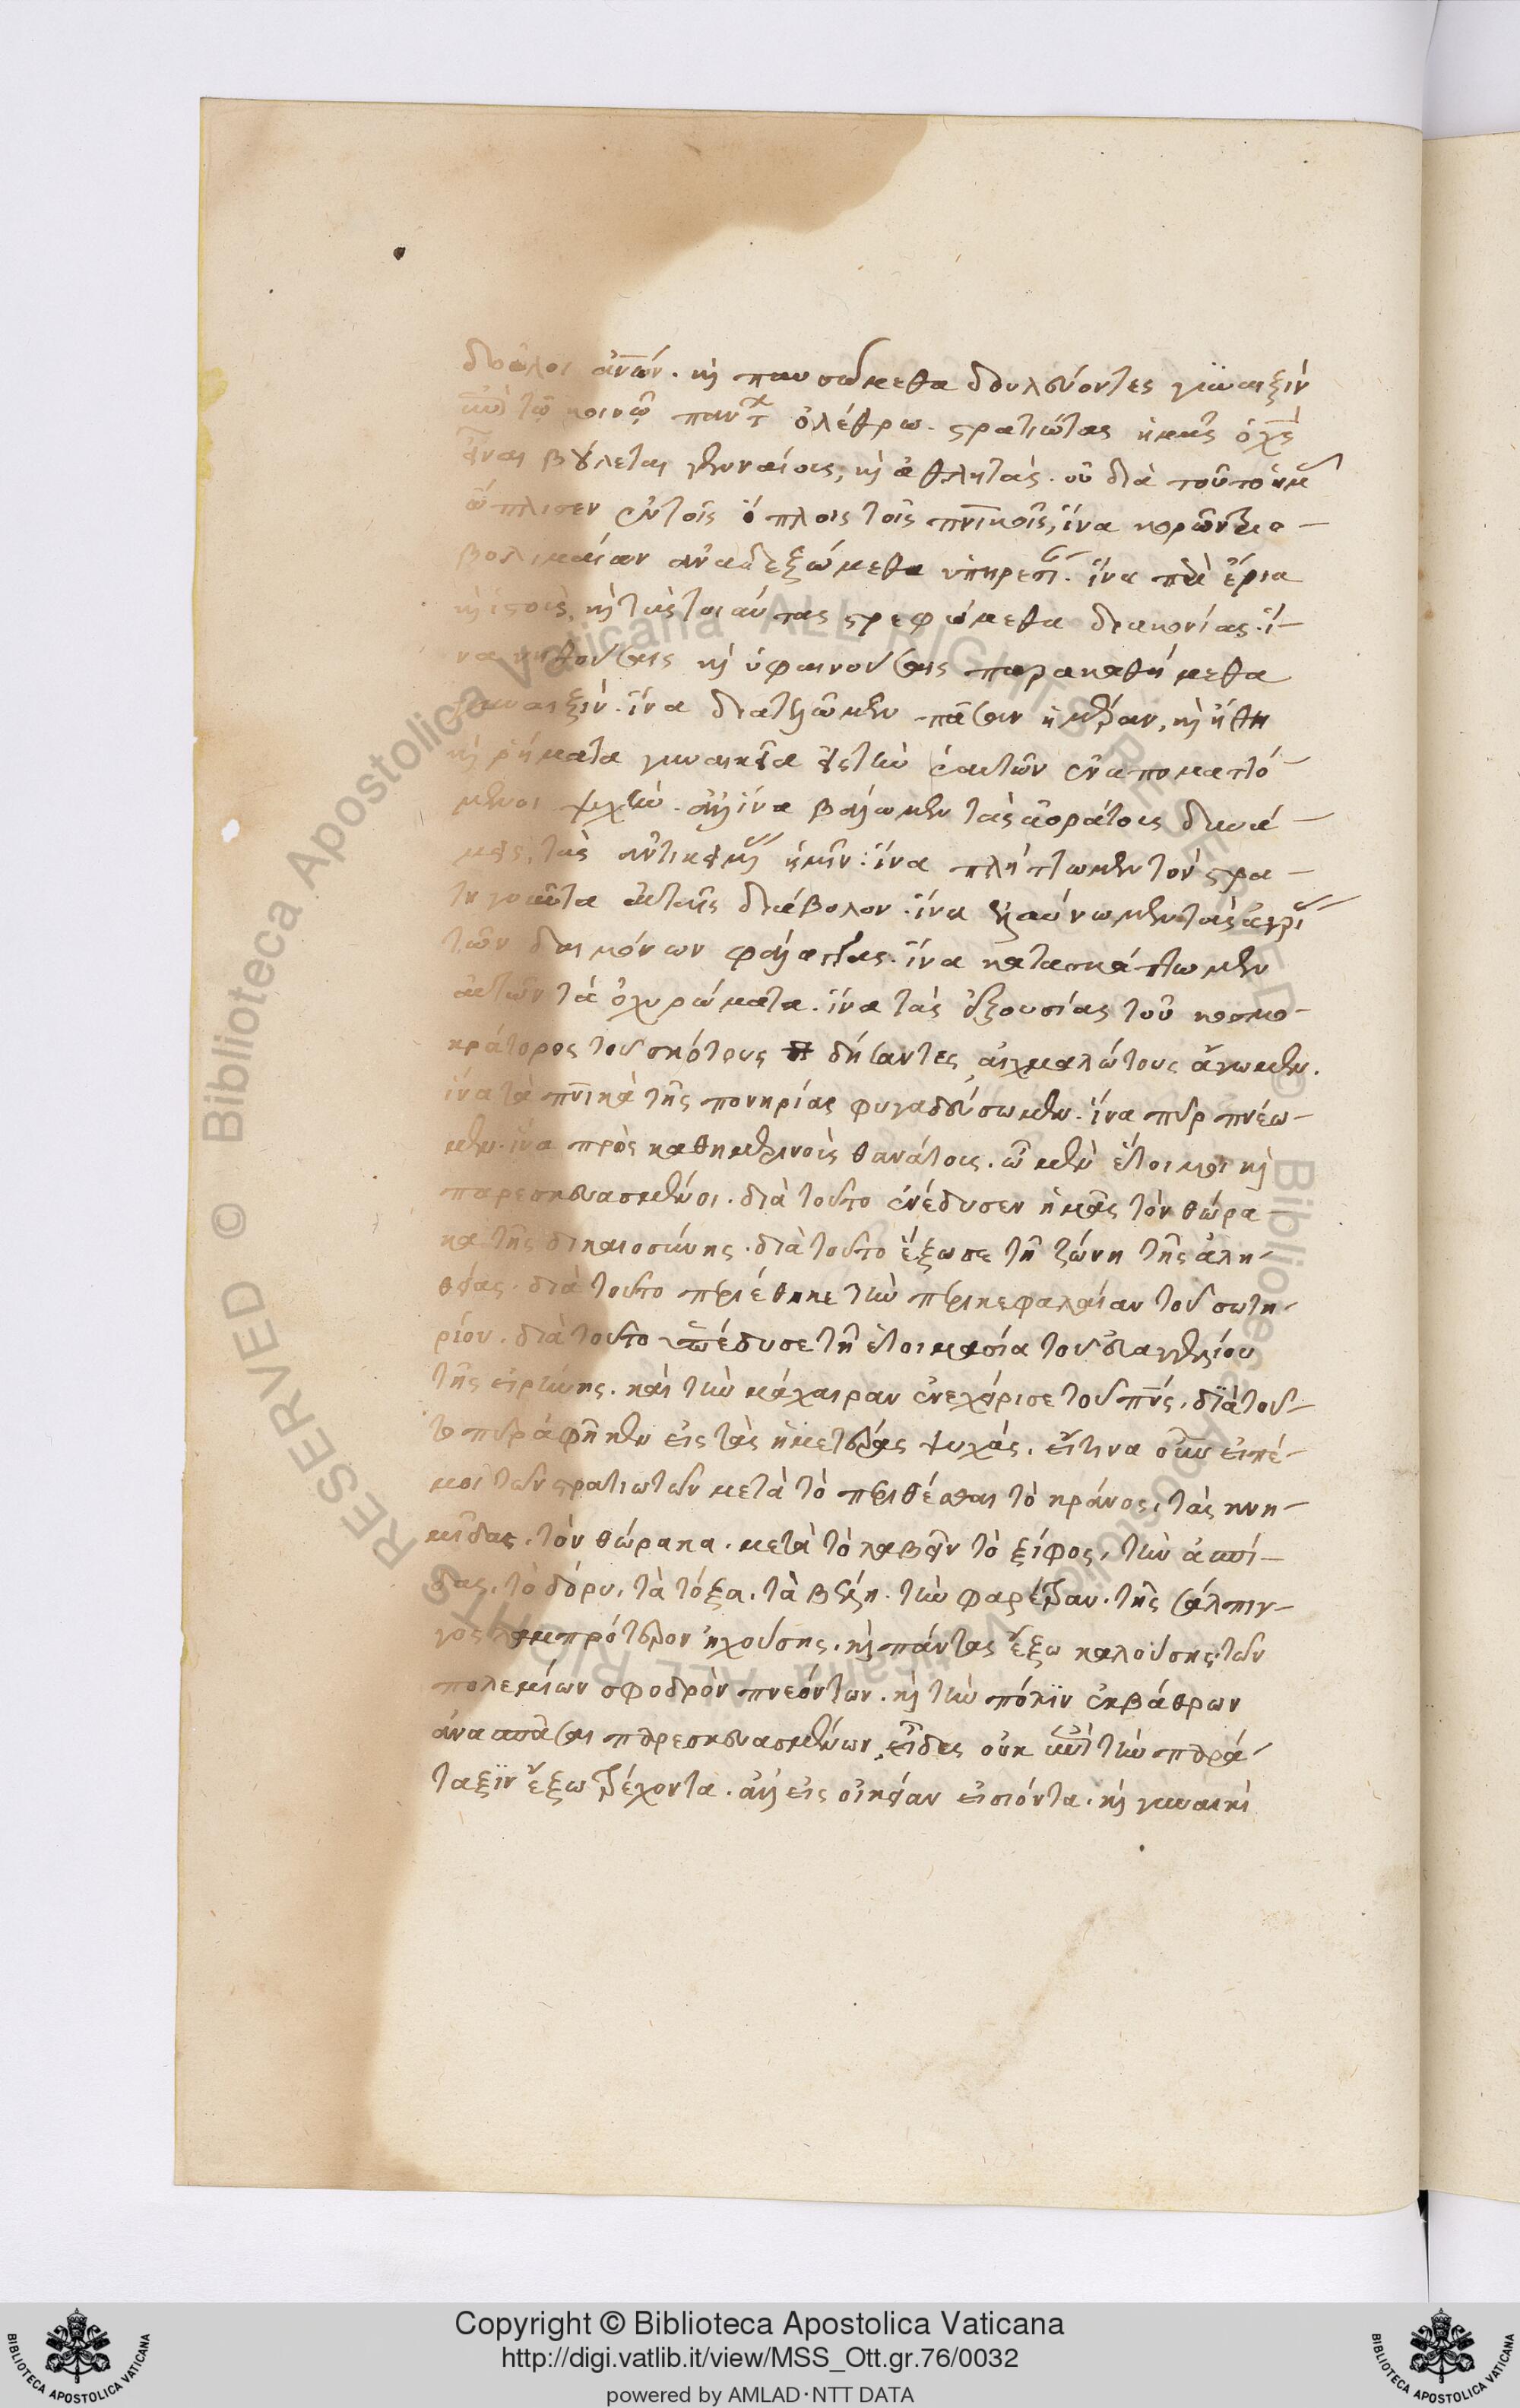 δοῦλοι ἀνων. κὶ παυσώμεθα δουλεύοντες γυναιξὶν
ἐπὶ τῷ κοινῷ παντ ὀλέθρω. στρατιώτας ἡμᾶς ὁ χς
εἶναι βούλεται γενναίους, κὶ ἀθλητάς. οὐ διὰ τοῦτο ἡμ
ὥπλισεν ἐν τοῖς ὅπλοις τοῖς πνικοῖς, ἵνα κορῶν τριο-
βολιμαίων ἀναδεξώμεθα ὑπηρεσί. ἵνα περὶ ἔρια
κὶ ἱστοὺς, κὶ τὰς τοιαύτας στρεφώμεθα διακονίας. ἵ-
να νηθούσαις κὶ ὑφαινούσαις παρακαθήμεθα
γυναιξίν. ἵνα διατελῶμεν πᾶσαν ἡμέραν, κὶ ἤθη
κὶ ῥήματα γυναικεῖα εἰς τὴν ἑαυτῶν ἐναποματτό-
μενοι ψυχήν. ἀλλ ἵνα βάλωμεν τὰς ἀοράτους δυνά-
μεις, τὰς ἀντικειμ ἡμῖν. ἵνα πλήττωμεν τὸν στρα-
τηγοῦντα αὐταῖς διάβολον. ἵνα ἐλαύνωμεν τὰς ἀγρί
τῶν δαιμόνων φάλαγγας. ἵνα κατασκάπτωμεν
αὐτῶν τὰ ὀχυρώματα. ἵνα τὰς ἐξουσίας τοῦ κοσμο-
κράτορος τοῦ σκότους δήσαντες αἰχμαλώτους ἄγωμεν.
ἵνα τὰ πνικὰ τῆς πονηρίας φυγαδεύσωμεν. ἵνα πῦρ πνέω-
μεν. ἵνα πρὸς καθημερινοὺς θανάτους. ὦμεν ἕτοιμοι κὶ
παρεσκευασμένοι. διὰ τοῦτο ἐνέδυσεν ἡμᾶς τὸν θώρα-
κα τῆς δικαιοσύνης. διὰ τοῦτο ἔζωσε τῆ ζώνη τῆς ἀλη-
θείας. διὰ τοῦτο περιέθηκε τὴν περικεφαλαίαν τοῦ σωτη-
ρίου. διὰ τοῦτο ὑπέδυσε τῆ ἑτοιμασία τοῦ εὐαγγελίου
τῆς εἰρήνης. καὶ τὴν μάχαιραν ἐνεχείρισε τοῦ πνς. διὰ τοῦ-
το πῦρ ἀφῆκεν εἰς τὰς ἡμετέρας ψυχάς. εἴ τινα οὖν εἰπέ-
μοι τῶν στρατιωτῶν μετὰ τὸ περιθέσθαι τὸ κράνος, τὰς κνη-
μῖδας, τὸν θώρακα. μετὰ τὸ λαβεῖν τὸ ξίφος, τὴν ἀσπί-
δας, τὸ δόρυ, τὰ τόξα, τὰ βέλη. τὴν φαρέτραν. τῆς σάλπιγ-
γος λαμπρότερον ἠχούσης. κὶ πάντας ἔξω καλούσης. τῶν
πολεμίων σφοδρὸν πνεόντων. κὶ τὴν πόλιν ἐκ βάθρων
ἀνασπᾶσαι παρεσκευασμένων, εἶδες οὐκ ἐπὶ τὴν παρά-
ταξιν ἔξω τρέχοντα. ἀλλ εἰς οἰκείαν εἰσιόντα. κὶ γυναικὶ
Copyright © Biblioteca Apostolica Vaticana
http://digi.vatlib.it/view/MSS_Ott.gr.76/0032
powered by AMLAD·NTT DATA